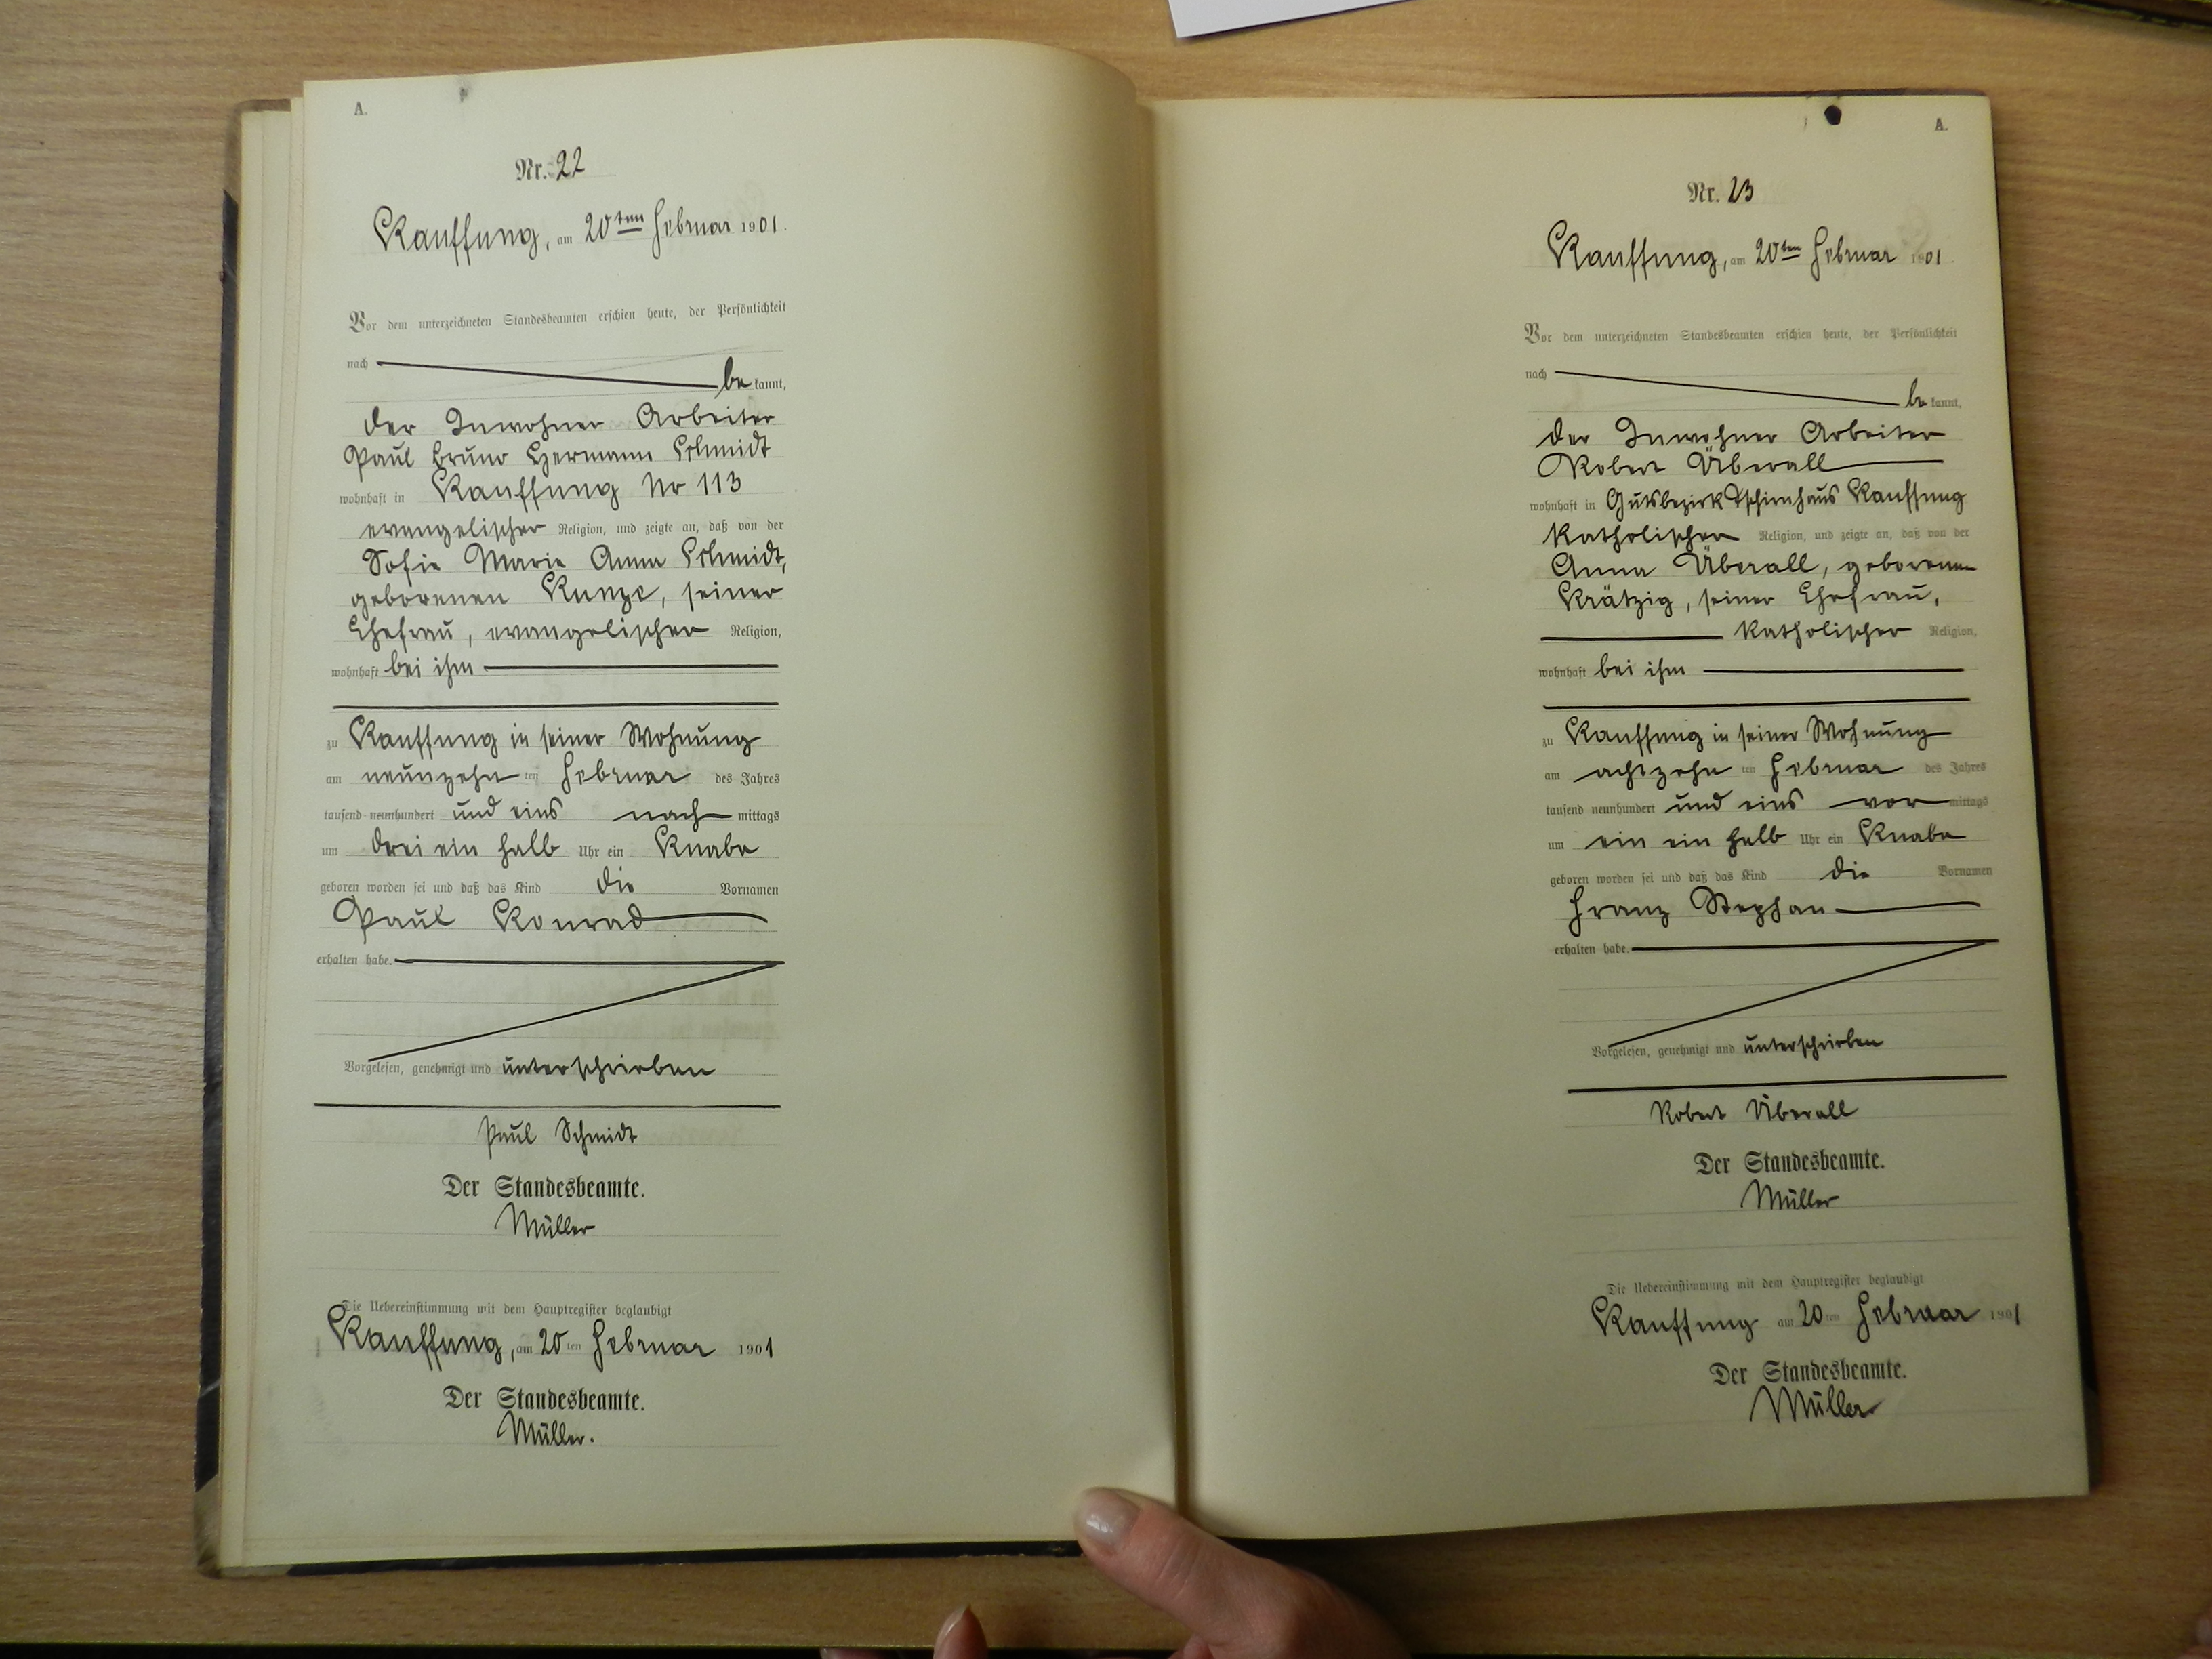 A.
Nr. 22
Kauffung, am 20ten Februar 1901.
Vor dem unterzeichneten Standesbeamten erschien heute, der Persönlichkeit
nach be kannt,
der Inwohner Arbeiter
Paul Bruno Hermann Schmidt
wohnhaft in Kauffung No 113
evangelischer Religion, und zeigte an, daß von der
Sofie Marie Anna Schmidt,
geborenen Kunze, seiner
Ehefrau, evangelischer Religion,
wohnhaft bei ihm
zu Kauffung in seiner Wohnung
am neunzehn ten Februar des Jahres
tausend neunhundert und eins nach mittags
um drei ein halb Uhr ein Knabe
geboren worden sei und daß das Kind die Vornamen
Paul Konrad
erhalten habe.
Vorgelesen, genehmigt und unterschrieben
Paul Schmidt
Der Standesbeamte.
Müller
Die Uebereinstimmung mit dem Hauptregister beglaubigt
Kauffung, am 20 ten Februar 1901
Der Standesbeamte.
Müller.
A.
Nr. 23
Kauffung, am 20ten Februar 1901.
Vor dem unterzeichneten Standesbeamten erschien heute, der Persönlichkeit
nach be kannt,
der Inwohner Arbeiter
Robert Überall
wohnhaft in Gutsbezirk Tschirnhaus Kauffung
katholischer Religion, und zeigte an, daß von der
Anna Überall, geborenen
Krätzig, seiner Ehefrau,
katholischer Religion,
wohnhaft bei ihm
zu Kauffung in seiner Wohnung
am achtzehn ten Februar des Jahres
tausend neunhundert und eins vor mittags
um ein ein halb Uhr ein Knabe
geboren worden sei und daß das Kind die Vornamen
Franz Stephan
erhalten habe.
Vorgelesen, genehmigt und unterschrieben
Robert Überall
Der Standesbeamte.
Müller
Die Uebereinstimmung mit dem Hauptregister beglaubigt
Kauffung am 20 ten Februar 1901
Der Standesbeamte.
Müller